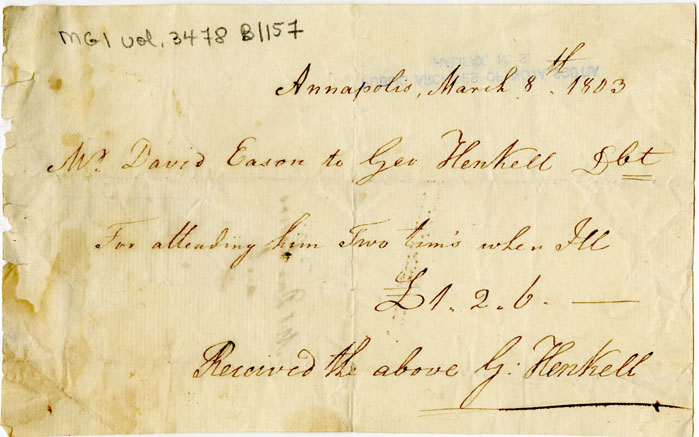 MG1 vol. 3478 B/157
HALIFAX, N. S.
PUBLIC ARCHIVES OF NOVA SCOTIA
Annapolis, March 8th. 1803
Mr. David Eason to Geo Henkell Dbt
For attending him Two tim's when Ill
£1. 2. 6. —
Received the above G: Henkell